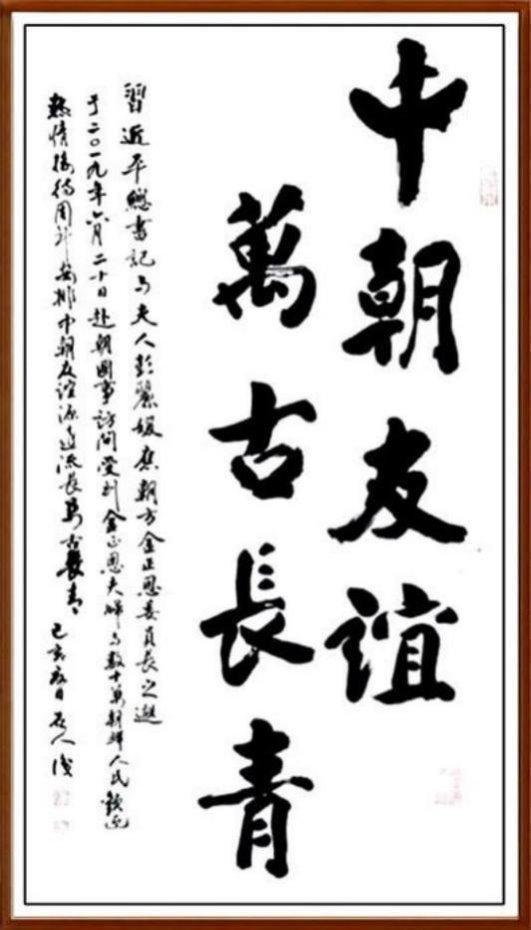 中朝友誼
萬古長青
習近平總書記与夫人彭麗媛應朝方金正恩委員長之邀
于二〇一九年六月二十日赴朝國事訪問受到金正恩夫婦与數十萬朝鮮人民歡迎
熱情接待周到安排中朝友誼源遠流長萬古長青 己亥夏日